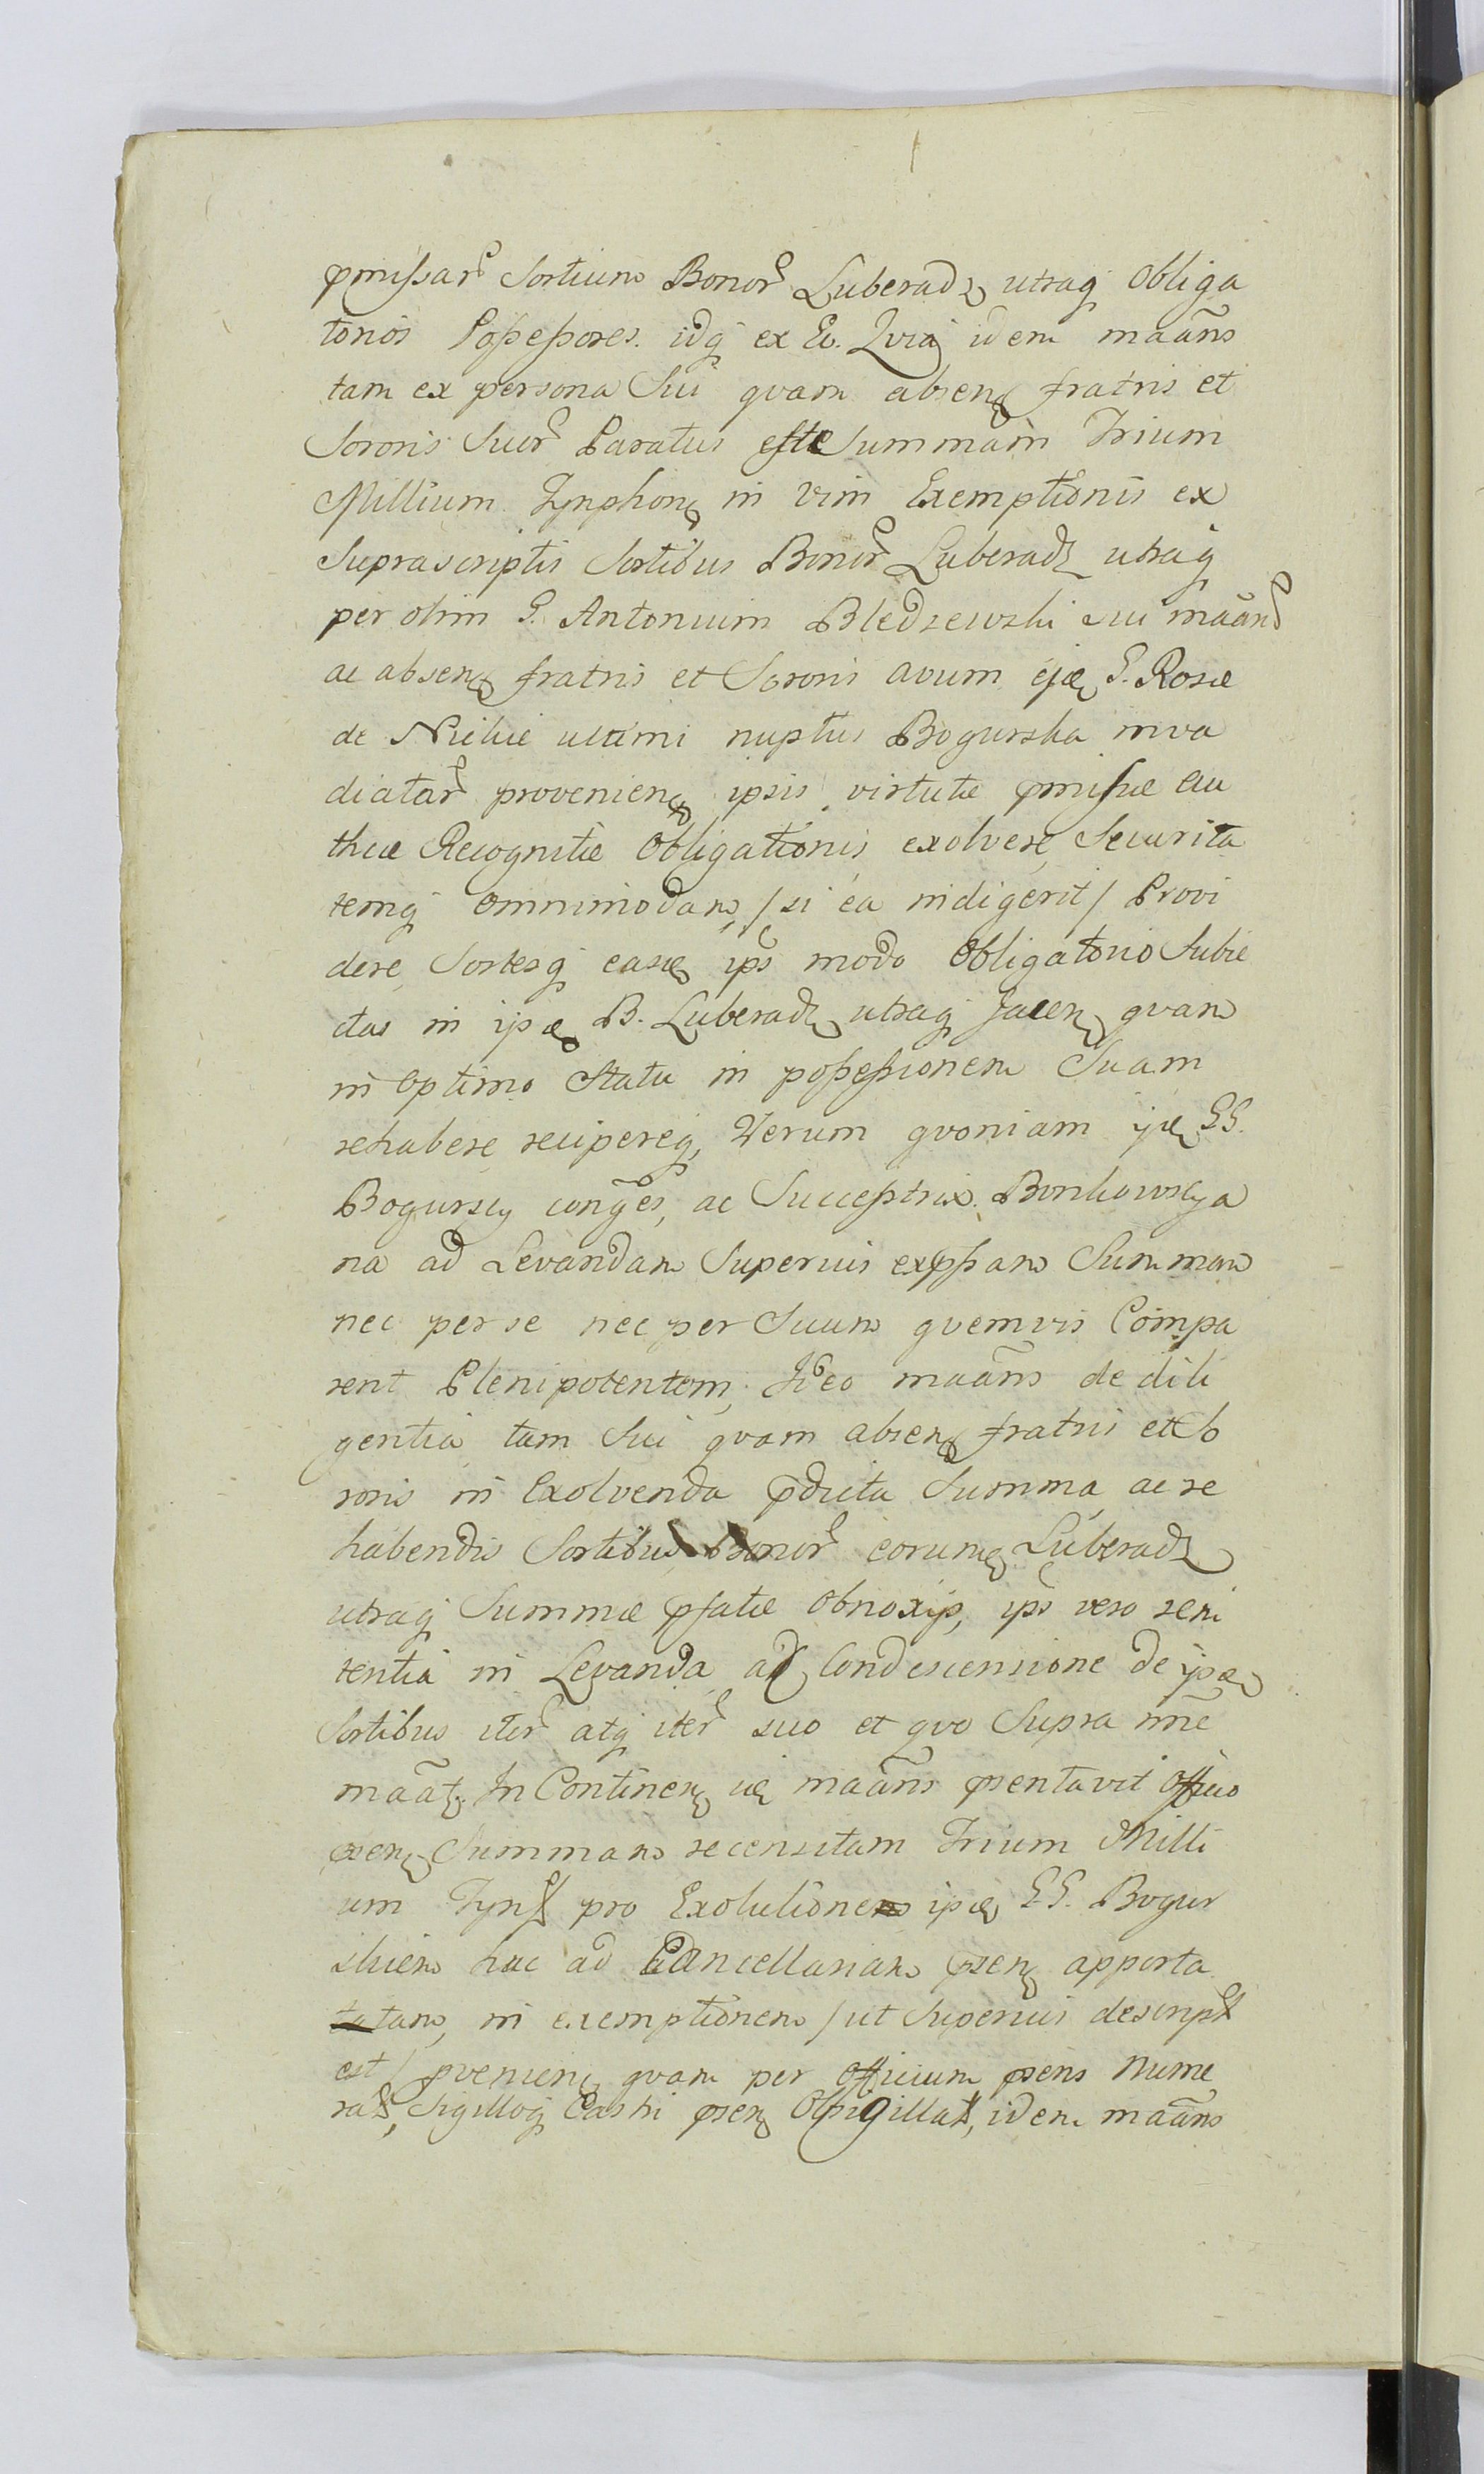 pmissar Sortium Bonor Luberadz utraq Obliga
torios Possessores. idq ex Eo. Qvia idem maãns
tam ex persona Sui qvam absen fratris et
Sororis Suor Paratus est Summam Trium
Millium Tynphon in vim Exemptionis ex
Suprascriptis Sortibus Bonor Luberadz utraq
per olim G. Antonium Bledzewski sui maãn
ac absen fratris et Sororis avum ejae G. Rosae
de ultimi nuptus Bogurska inva
diatar provenien ipsis virtute pmissae au
thcae Recognitae Obligationis exolvere, Securita
temq omnimodam, /si ea indigerit/ Provi
dere, Sortesq easd ips modo Obligatorio Subie
ctas in ipae B. Luberadz utraq Jacen qvam
in Optimo Statu in possessionem Suam
rehabere recipereq, Verum qvoniam ijd GG.
Bogurscy conges, ac Successtrix Borkowscya
na ad Levandam Superius expssam Summam
nec per se nec per Suum qvemvis Compa
rent Plenipotentem, Ideo maãns de dili
gentia tam Sui qvam absen fratris et So
roris in Exolvenda pdicta Summa, ac re
habendis Sortibus Bonor eorumd Luberadz
utraq Summae pfatae Obnoxijs, ips vero reni
tentia in Levanda, ac Condescensione de ijsd
Sortibus iter atq iter suo et qvo Supra nne
maãt. In Continen id maãns psentavit Officio
psen Summam recensitam Trium Milli
um Tynf pro Exolutione ipae GG. Bogur
skiem hac ad Cancellariam psen apporta
tam, in exemptionem /ut Superius descript
est/ pvenien, qvam per Officium psens Nume
rat, Sigilloq Castri psen Obsigillat, idem maãns